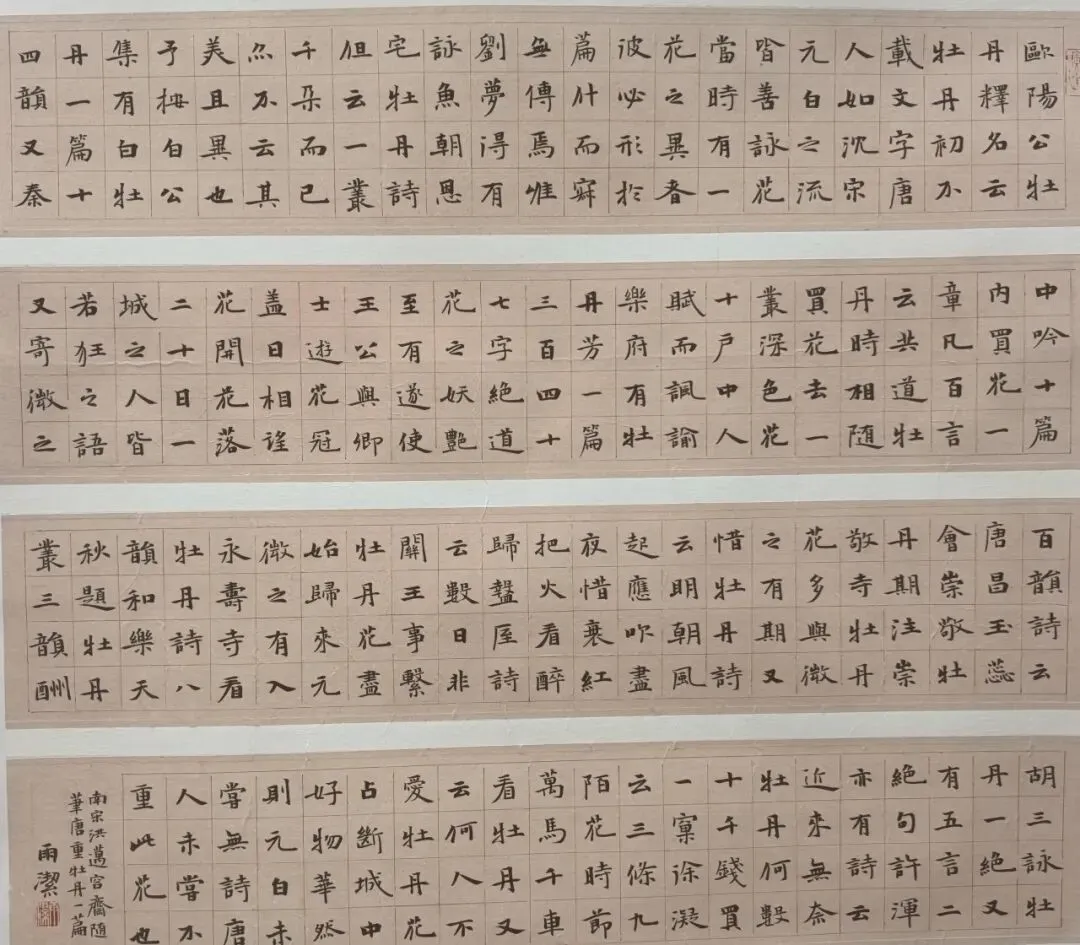 歐陽公牡
丹釋名云
牡丹初不
載文字唐
人如沈宋
元白之流
皆善詠花
當時有一
花之異者
彼必形於
篇什而寂
無傳焉惟
劉夢得有
詠魚朝恩
宅牡丹詩
但云一叢
千朵而已
亦不云其
美且異也
予桉白公
集有白牡
丹一篇十
四韻又秦
中吟十篇
內買花一
章凡百言
云共道牡
丹時相隨
買花去一
叢深色花
十戶中人
賦而諷諭
樂府有牡
丹芳一篇
三百四十
七字絕道
花之妖艷
至有遂使
王公與卿
士遊花冠
蓋日相望
花開花落
二十日一
城之人皆
若狂之語
又寄微之
百韻詩云
唐昌玉蕊
會崇敬牡
丹期注崇
敬寺牡丹
花多與微
之有期又
惜牡丹詩
云明朝風
起應吹盡
夜惜衰紅
把火看醉
歸盩厔詩
云數日非
關王事繫
牡丹花盡
始歸來元
微之有入
永壽寺看
牡丹詩八
韻和樂天
秋題牡丹
叢三韻酬
胡三詠牡
丹一絕又
有五言二
絕句許渾
亦有詩云
近來無奈
牡丹何數
十千錢買
一窠徐凝
云三條九
陌花時節
萬馬千車
看牡丹又
云何人不
愛牡丹花
占斷城中
好物華然
則元白未
嘗無詩唐
人未嘗不
重此花也
南宋洪邁容齋隨
筆唐重牡丹一篇
雨潔